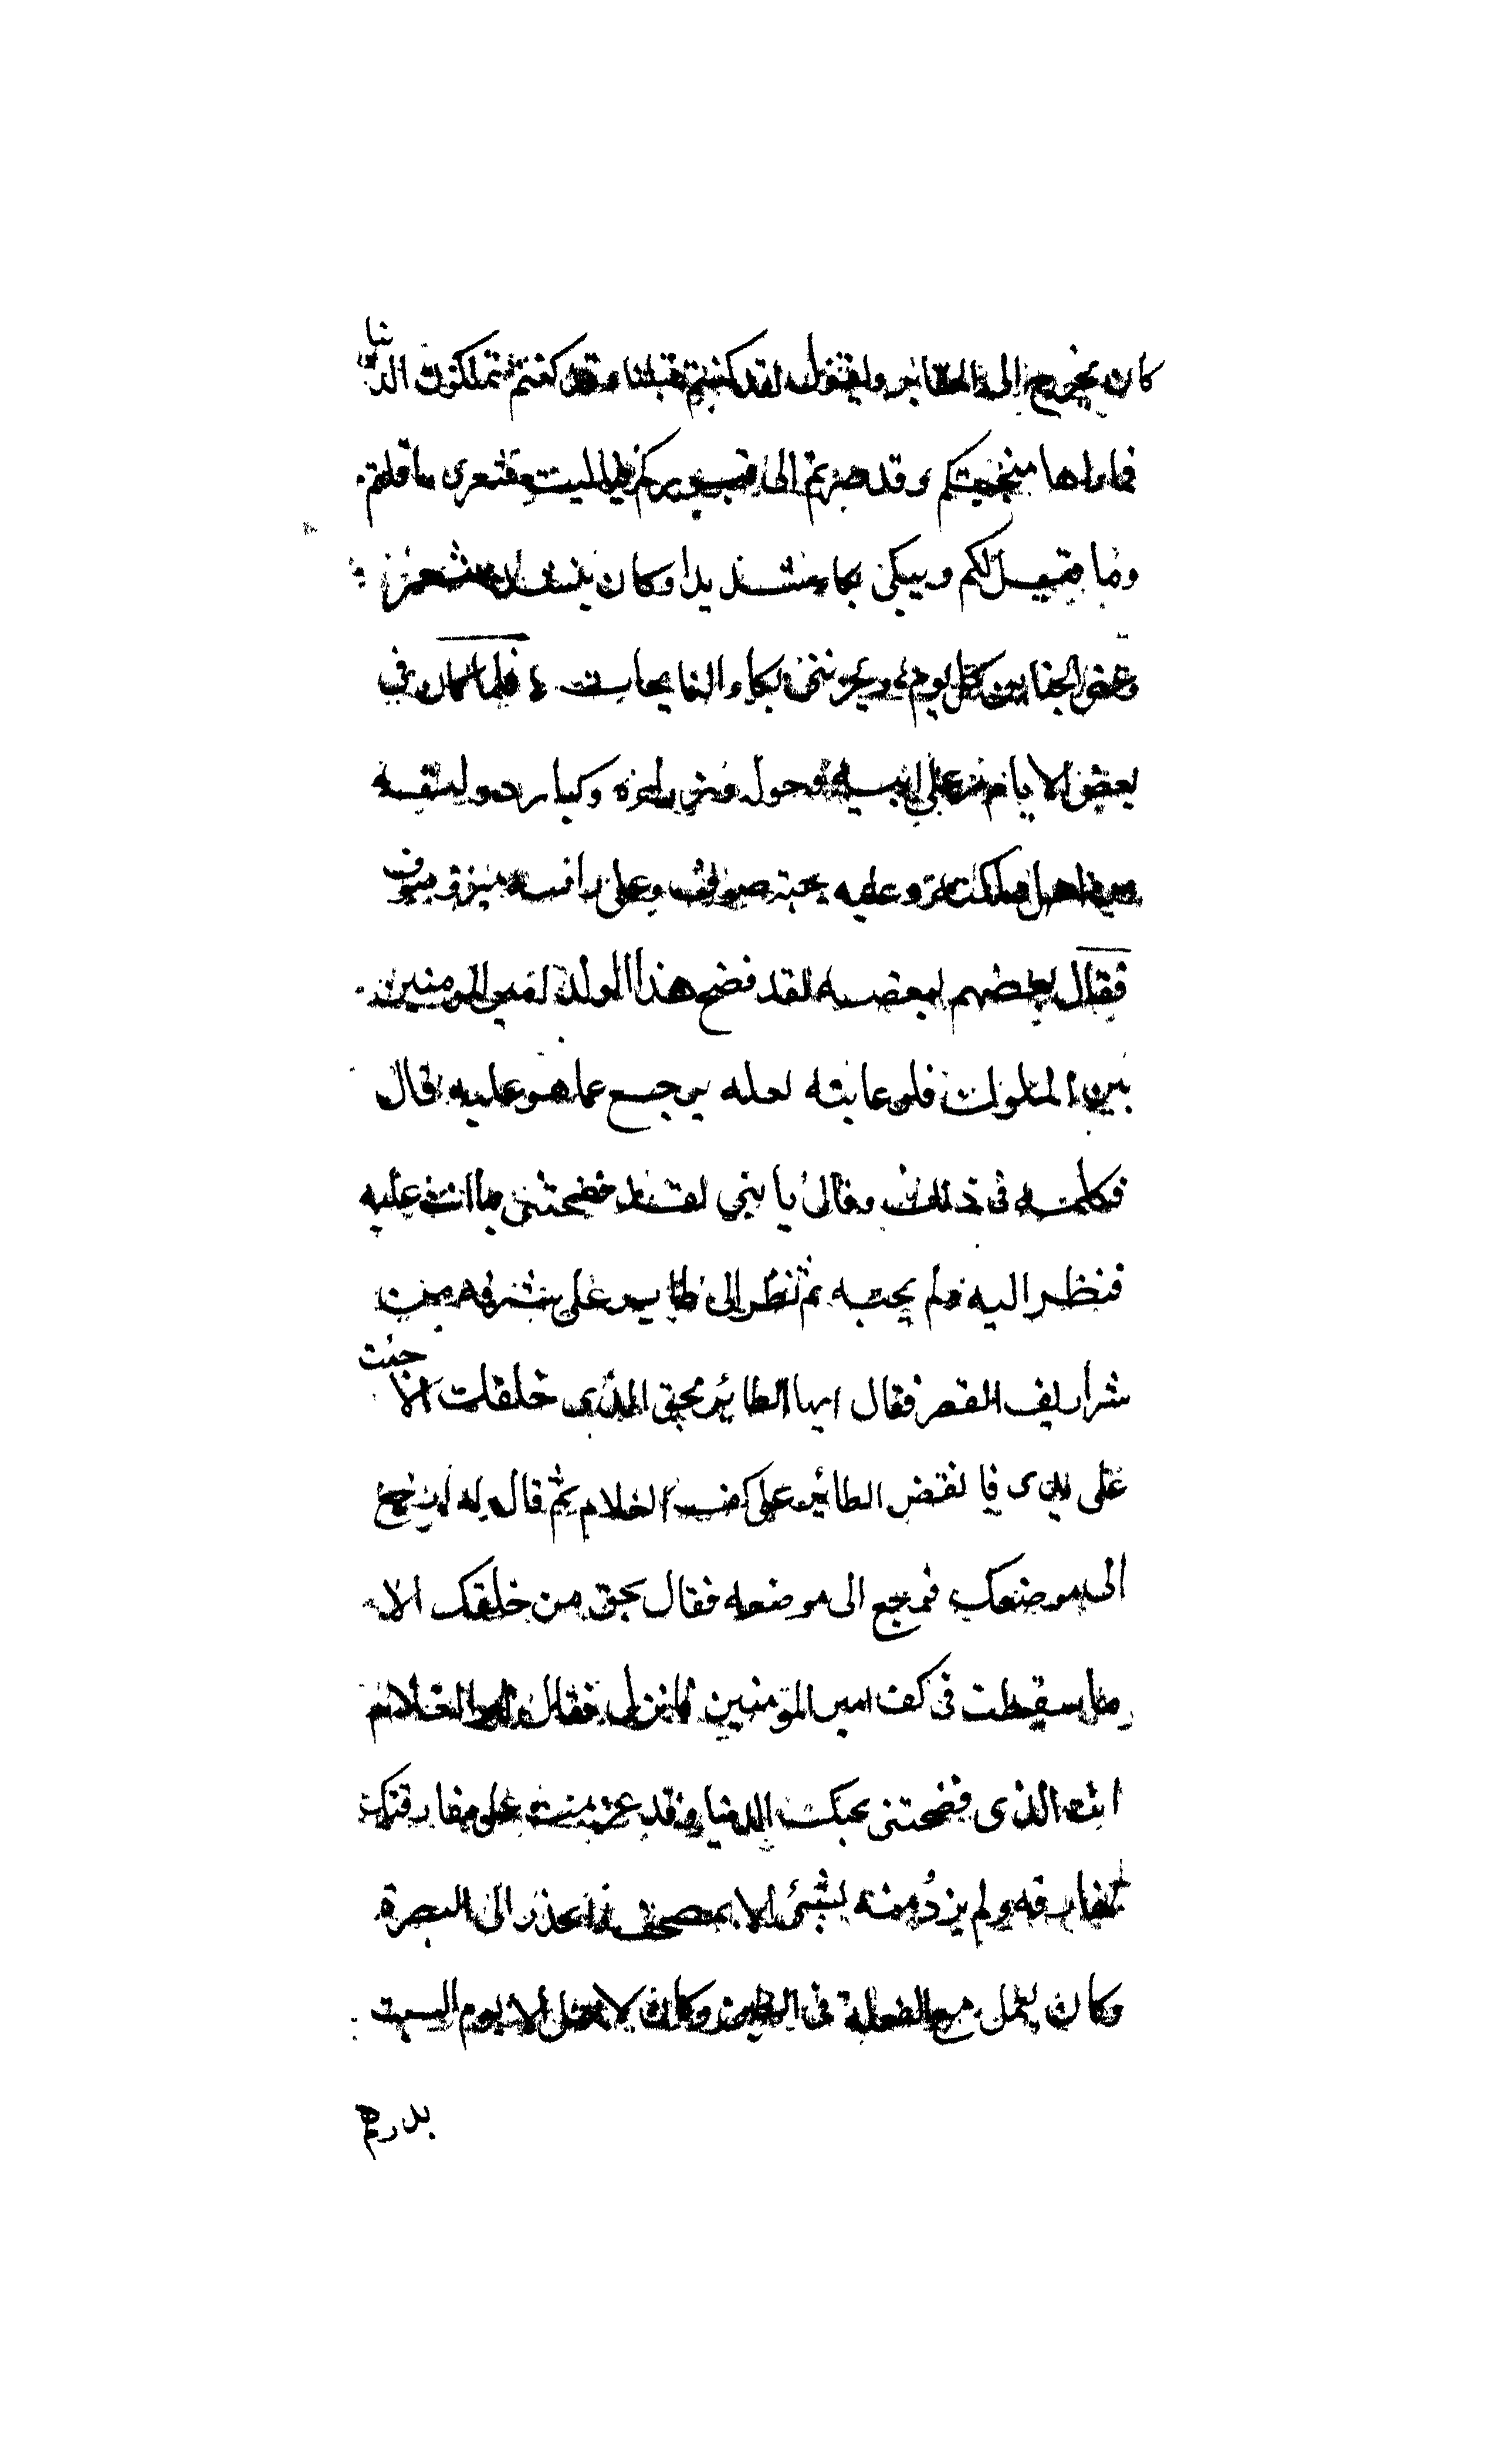 كان يخرج الى المقابر ويقول لقد كنتم قبلنا وقد كنتم تملكون الدنيا
فما راها منجيتكم وقد صرتم الى قبوركم فياليت شعرى ما قلتم
وما قيل لكم ويبكى بكا شديدا وكان ينشد شعر
الجنايز كل يوم ويحزننى بكاء النايحات فلما كان فى
بعض الايام مر على ابيه وحوله وزراؤه وكبار دولته
من اهل مملكته وعليه جبة صوف وعلى راسه ميزر صوف
فقال بعضهم لبعض لقد فضح هذا الولد امير المومنين
بين الملوك فلو عاتبته لعله يرجع عما هو عليه قال
فكلمه فى ذلك وقال يا بنى لقد فضحتنى بما انت عليه
فنظر اليه ولم يجبه ثم نظر الى طاير على شرفه من
شراريف القصر فقال ايها الطائر بحق الذى خلقك الا جئت
على يدى فانقض الطائر على كف الغلام ثم قال له ارجع
الى موضعك فرجع الى موضعه فقال بحق من خلقك الا
ما سقطت فى كف امير المؤمنين فما نزل فقال له الغلام
انت الذى فضحتنى بحبك الدنيا وقد عزمت على مفارقتك
ففارقه ولم يزد منه بشئ الا بمصحف فانحدر الى البصرة
وكان يعمل مع الفعلة فى الطين وكان لا يعمل الا يوم السبت
بدرهم